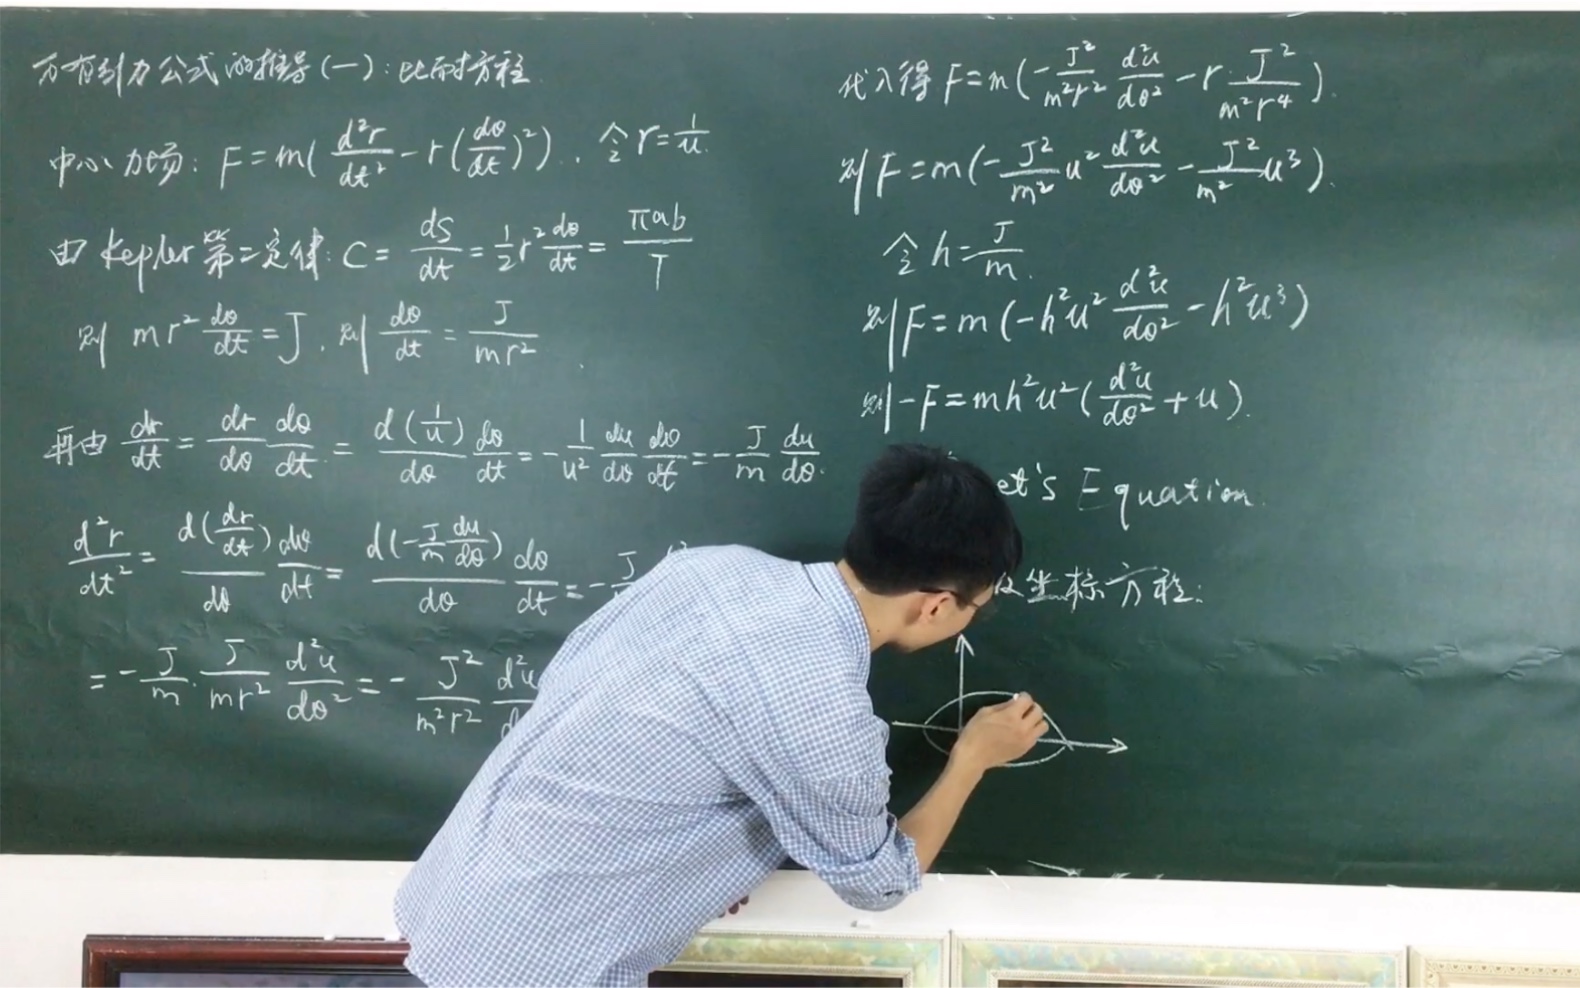 万有引力公式的推导(一):比耐方程.
中心力场: F=m(\frac{d²r}{dt²}-r(\frac{dθ}{dt})²). 令r=\frac{1}{u}.
由Kepler第二定律: C=\frac{dS}{dt}=\frac{1}{2}r²\frac{dθ}{dt}=\frac{πab}{T}
则 mr²\frac{dθ}{dt}=J. 则\frac{dθ}{dt}=\frac{J}{mr²}.
再由 \frac{dr}{dt}=\frac{dr}{dθ}\frac{dθ}{dt}=\frac{d(\frac{1}{u})}{dθ}\frac{dθ}{dt}=-\frac{1}{u²}\frac{du}{dθ}\frac{dθ}{dt}=-\frac{J}{m}\frac{du}{dθ}.
\frac{d²r}{dt²}=\frac{d(\frac{dr}{dt})}{dθ}\frac{dθ}{dt}=\frac{d(-\frac{J}{m}\frac{du}{dθ})}{dθ}\frac{dθ}{dt}=-\frac{J}
=-\frac{J}{m}·\frac{J}{mr²}\frac{d²u}{dθ²}=-\frac{J²}{m²r²}\frac{d²u}{d
代入得 F=m(-\frac{J²}{m²r²}\frac{d²u}{dθ²}-r·\frac{J²}{m²r⁴}).
则F=m(-\frac{J²}{m²}u²\frac{d²u}{dθ²}-\frac{J²}{m²}u³).
令h=\frac{J}{m}.
则F=m(-h²u²\frac{d²u}{dθ²}-h²u³)
则-F=mh²u²(\frac{d²u}{dθ²}+u).
et's Equation.
坐标方程: